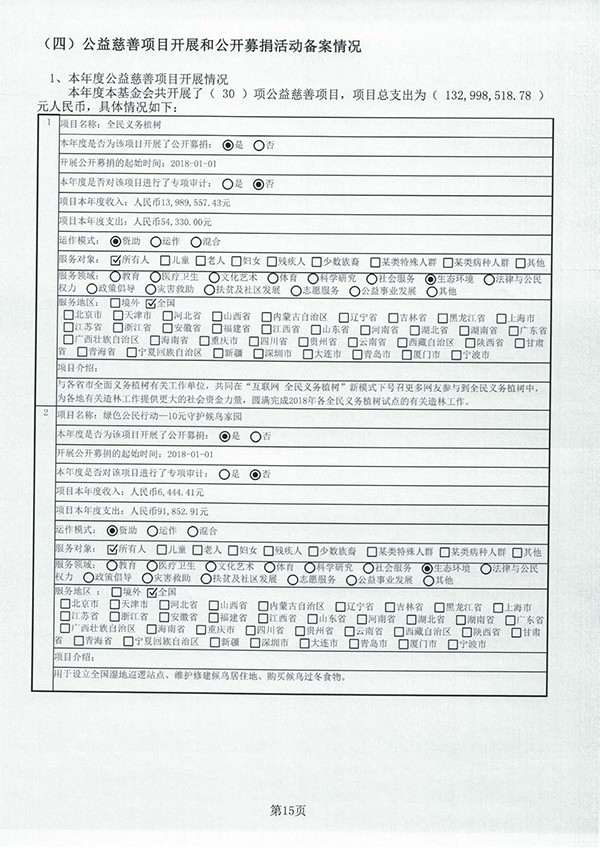 （四）公益慈善项目开展和公开募捐活动备案情况
1、本年度公益慈善项目开展情况
本年度本基金会共开展了（ 30 ）项公益慈善项目，项目总支出为（ 132,998,518.78 ）
元人民币，具体情况如下：
1 项目名称：全民义务植树
本年度是否为该项目开展了公开募捐：◉是 ○否
开展公开募捐的起始时间：2018-01-01
本年度是否对该项目进行了专项审计：○是 ◉否
项目本年度收入：人民币13,989,557.43元
项目本年度支出：人民币54,330.00元
运作模式：◉资助 ○运作 ○混合
服务对象：☑所有人 □儿童 □老人 □妇女 □残疾人 □少数族裔 □某类特殊人群 □某类病种人群 □其他
服务领域：○教育 ○医疗卫生 ○文化艺术 ○体育 ○科学研究 ○社会服务 ◉生态环境 ○法律与公民
权力 ○政策倡导 ○灾害救助 ○扶贫及社区发展 ○志愿服务 ○公益事业发展 ○其他
服务地区：□境外 ☑全国
□北京市 □天津市 □河北省 □山西省 □内蒙古自治区 □辽宁省 □吉林省 □黑龙江省 □上海市
□江苏省 □浙江省 □安徽省 □福建省 □江西省 □山东省 □河南省 □湖北省 □湖南省 □广东省
□广西壮族自治区 □海南省 □重庆市 □四川省 □贵州省 □云南省 □西藏自治区 □陕西省 □甘肃
省 □青海省 □宁夏回族自治区 □新疆 □深圳市 □大连市 □青岛市 □厦门市 □宁波市
项目介绍：
与各省市全面义务植树有关工作单位，共同在“互联网 全民义务植树”新模式下号召更多网友参与到全民义务植树中，
为各地有关造林工作提供更大的社会资金力量，圆满完成2018年各全民义务植树试点的有关造林工作。
2 项目名称：绿色公民行动—10元守护候鸟家园
本年度是否为该项目开展了公开募捐：◉是 ○否
开展公开募捐的起始时间：2018-01-01
本年度是否对该项目进行了专项审计：○是 ◉否
项目本年度收入：人民币6,444.41元
项目本年度支出：人民币91,852.91元
运作模式：◉资助 ○运作 ○混合
服务对象：☑所有人 □儿童 □老人 □妇女 □残疾人 □少数族裔 □某类特殊人群 □某类病种人群 □其他
服务领域：○教育 ○医疗卫生 ○文化艺术 ○体育 ○科学研究 ○社会服务 ◉生态环境 ○法律与公民
权力 ○政策倡导 ○灾害救助 ○扶贫及社区发展 ○志愿服务 ○公益事业发展 ○其他
服务地区：□境外 ☑全国
□北京市 □天津市 □河北省 □山西省 □内蒙古自治区 □辽宁省 □吉林省 □黑龙江省 □上海市
□江苏省 □浙江省 □安徽省 □福建省 □江西省 □山东省 □河南省 □湖北省 □湖南省 □广东省
□广西壮族自治区 □海南省 □重庆市 □四川省 □贵州省 □云南省 □西藏自治区 □陕西省 □甘肃
省 □青海省 □宁夏回族自治区 □新疆 □深圳市 □大连市 □青岛市 □厦门市 □宁波市
项目介绍：
用于设立全国湿地巡逻站点、维护修建候鸟居住地、购买候鸟过冬食物。
第15页